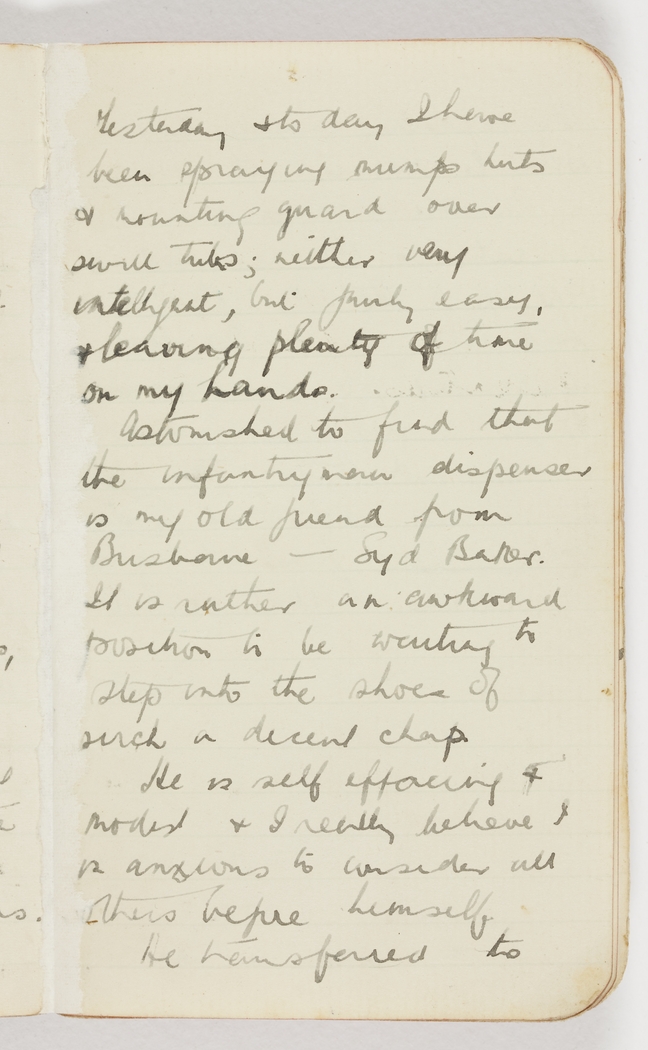 Yesterday & to day I have
been spraying mumps huts
& mounting guard over
swill tubs; neither very
intelligent, but fairly easy,
& leaving plenty of time
on my hands.
Astonished to find that
the infantryman dispenser
is my old friend from
Brisbane — Syd Baker.
It is rather an awkward
position to be waiting to
step into the shoes of
such a decent chap.
He is self effacing &
modest & I really believe
is anxious to consider all
others before himself
He transferred to